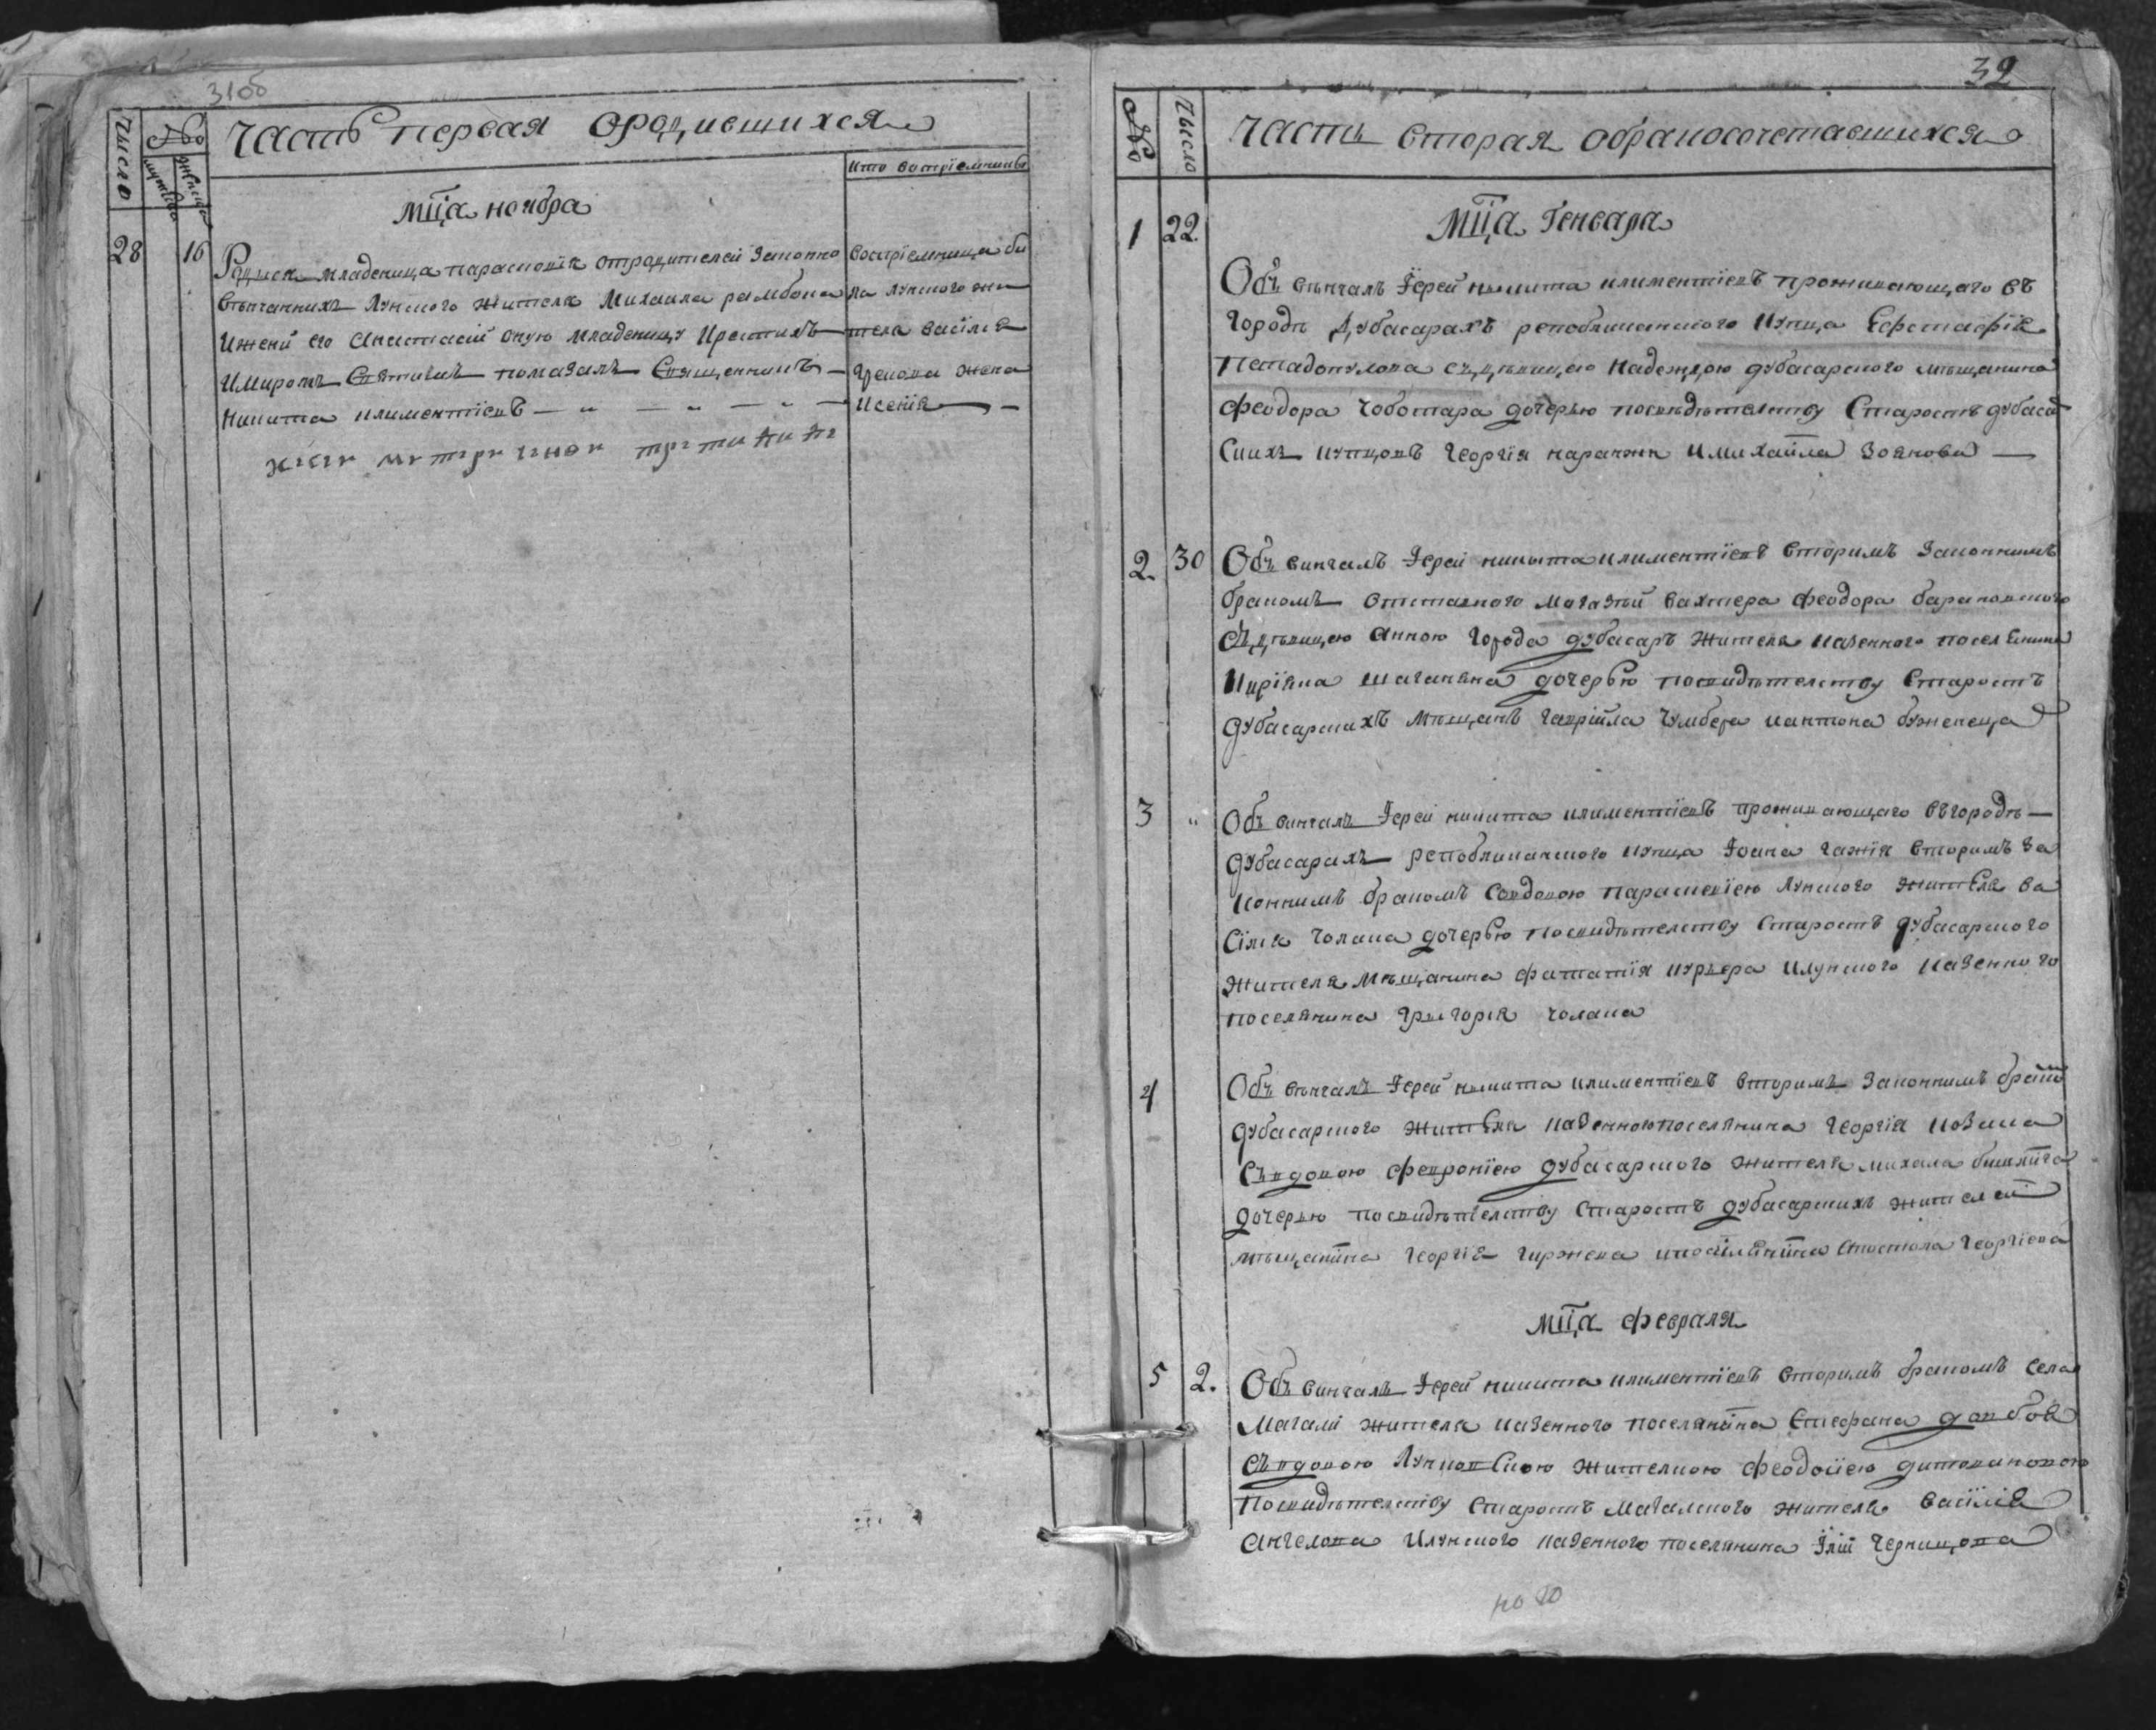 31об
Число
№
мужеска
женска
Часть первая о родившихся
кто восприемники
Мца ноября
28 16
Родися младеница параскевiя от родителей Законно
венчанних Лунгского жителя Михаила
и жены его Анастасiи оную младеницу крестилъ
и миромъ Святымъ помазалъ Священникъ
Никита климентiевъ
восприемница би
ла лунгского жи
теля василия
жена
Ксенiя
32
№
Число
Часть вторая о бракосочетавшихся
Мца Генваря
1 22.
Объ венчалъ Iерей никита климентiевъ проживающаго въ
городѣ Дубасарахъ репобликанского купца Ефстафiя
пападопулова съ дѣвицею Надеждою дубасарского мѣщанина
феодора чоботара дочерью посвидѣтелству Старостъ дубасар
скихъ купцовъ Георгiя каражи и михаила Зоянова
2. 30
Объ винчалъ Iерей никыта климентiевъ вторимъ Законнимъ
бракомъ отставного магазей вахтера феодора барановского
съ дѣвицею Анною города дубасаръ жителя казенного поселянина
Кирiяка дочерью посвидѣтелству Старостъ
дубасарскихъ мѣщанъ гаврiила и антона
3 "
Объ винчалъ Iерей никита климентiевъ проживающаго въ городѣ
дубасарахъ репобликанского купца Iоана вторимъ За
коннимъ бракомъ со вдовою параскевiею лунгского жителя ва
сiлия чолака дочерью посвидѣтелству Старостъ дубасарского
жителя мѣщанина и лунгского казенного
поселянина Григорiя чолака
4
Объ вѣнчалъ Iерей никита климентiевъ вторимъ Законнимъ браком
дубасарского жителя казенного поселянина Георгiя
съ вдовою февронiею дубасарского жителя михала
дочерью посвидѣтелству Старостъ дубасарскихъ жителей
мѣщанина Георгiя и поселянина Апостола Георгiева
Мца февраля
5 2.
Объ винчалъ Iерей никита климентiевъ вторимъ бракомъ села
Магали жителя казенного поселянина Стефана
съ вдовою Лунковскою жителкою феодосiею
посвидѣтелству Старостъ магалского жителя василiя
Ангелова и лунгского казенного поселянина Iлiи